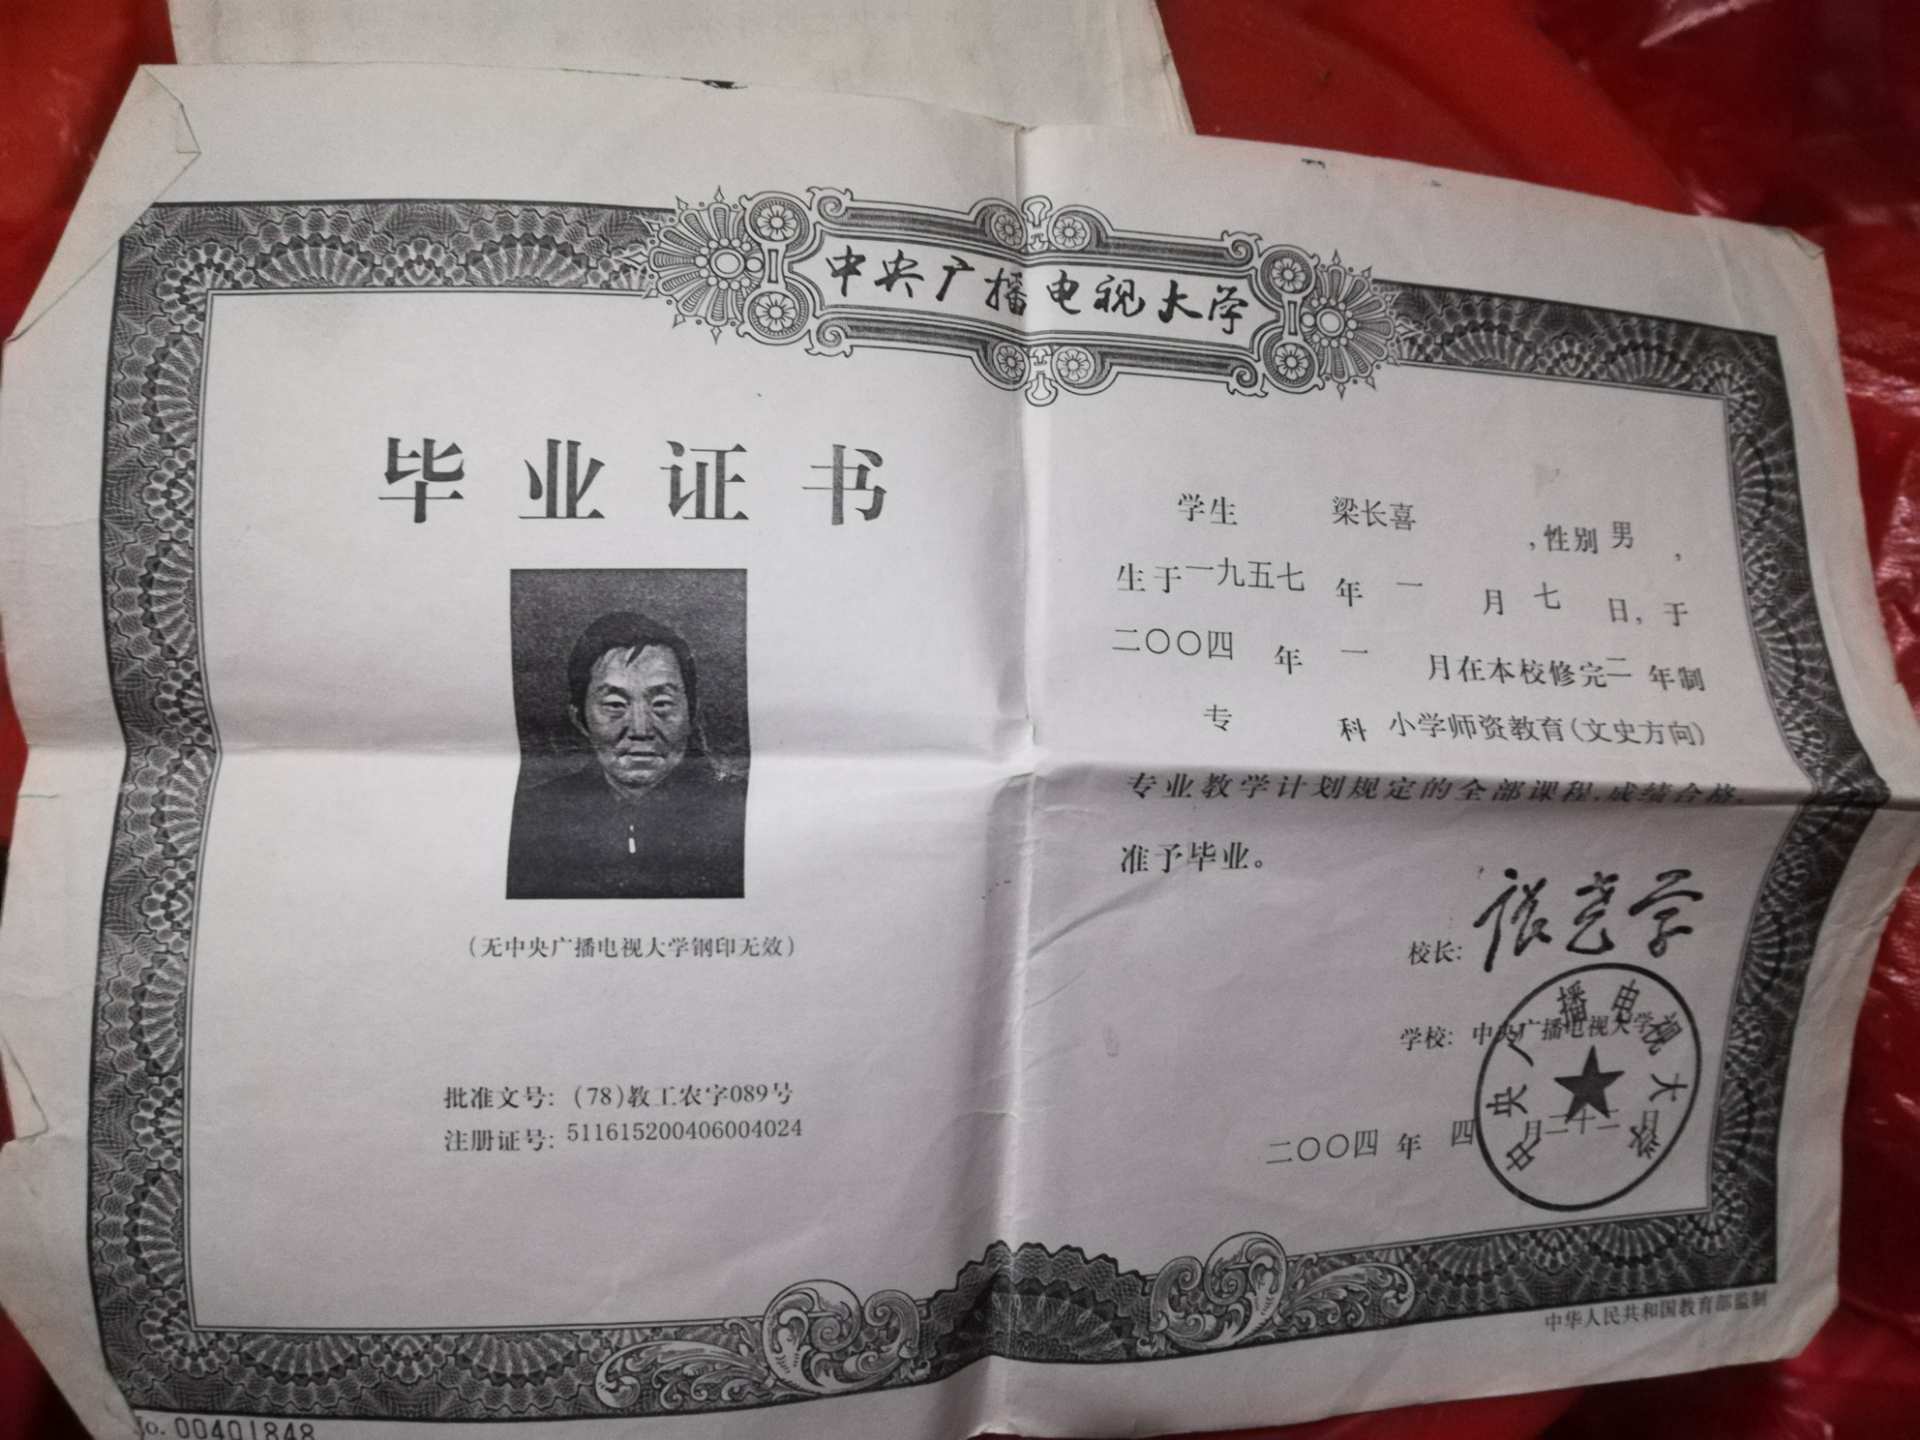 中央广播电视大学
毕业证书
(无中央广播电视大学钢印无效)
批准文号: (78)教工农字089号
注册证号: 511615200406004024
No. 00401848
学生 梁长喜 ,性别 男 ,
生于一九五七年一月七日,于
二〇〇四年一月在本校修完二年制
专科 小学师资教育(文史方向)
专业教学计划规定的全部课程,成绩合格,
准予毕业。
校长:
学校: 中央广播电视大学
二〇〇四年四月二十二日
中央广播电视大学
中华人民共和国教育部监制